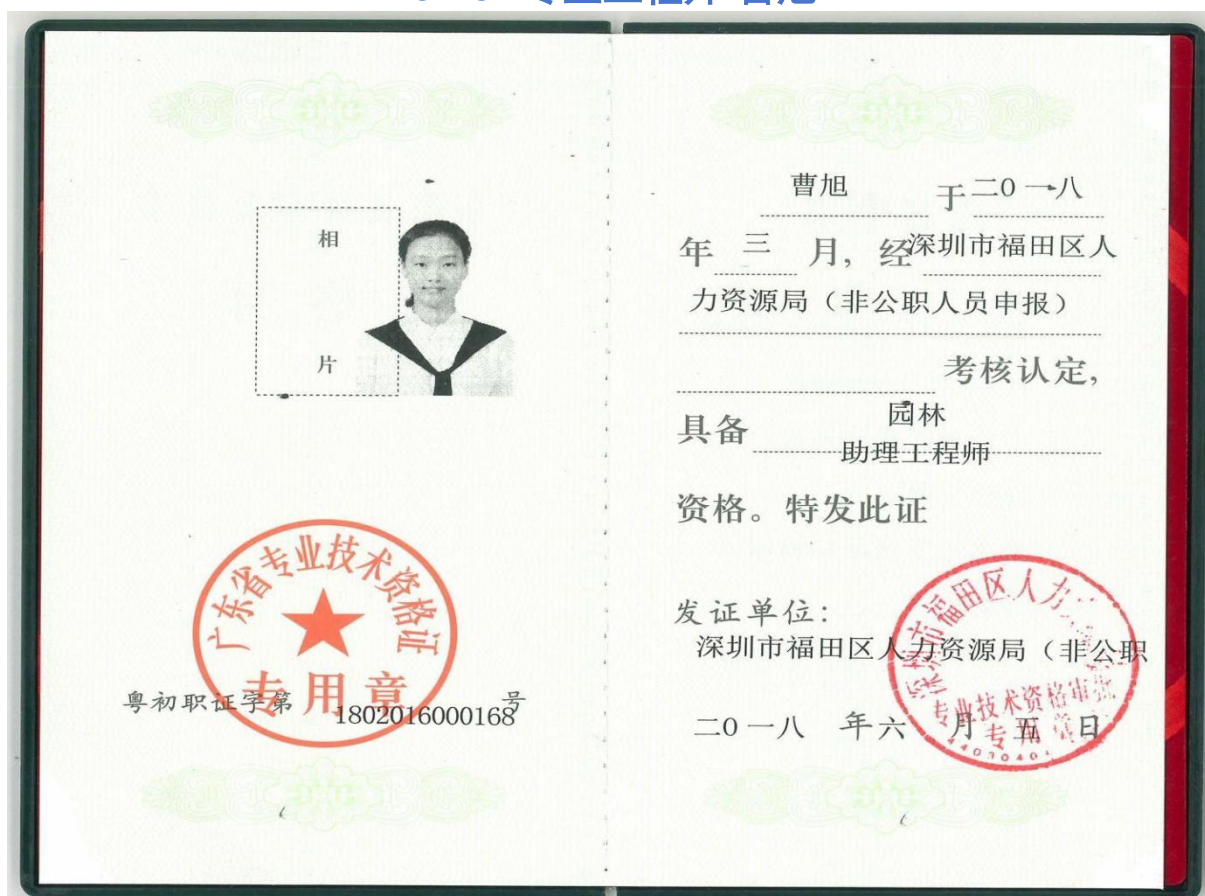 相
片
广东省专业技术资格证
专用章
粤初职证字第 1802016000168 号
曹旭 于二0一八
年 三 月，经深圳市福田区人
力资源局（非公职人员申报）
考核认定，
具备 园林
助理工程师
资格。特发此证
发证单位：
深圳市福田区人力资源局（非公职
二0一八 年六 月 五 日
深圳市福田区人力
专业技术资格审
专用章